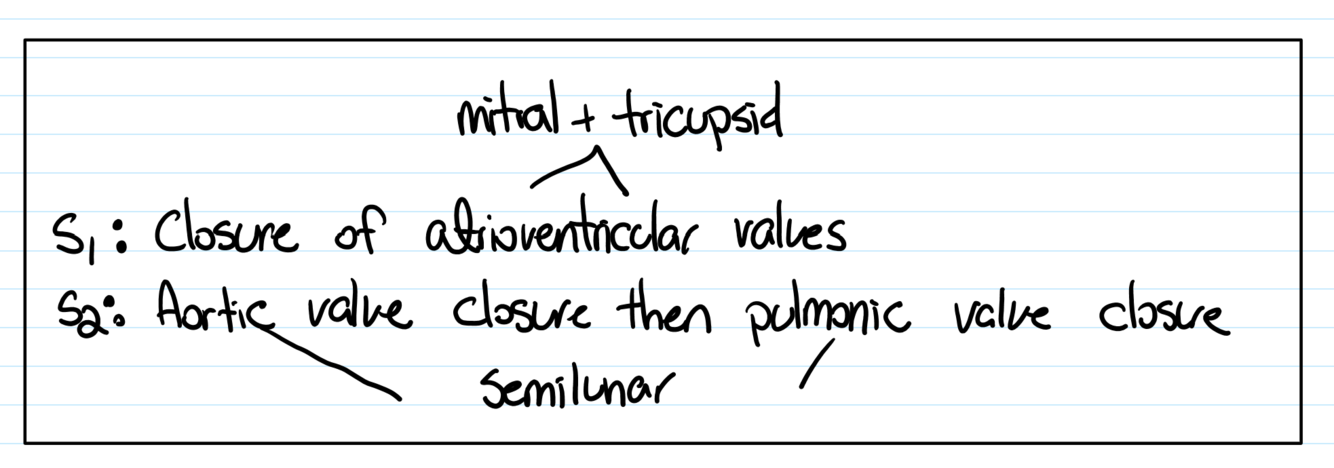 mitral + tricupsid
S₁: Closure of atrioventricular valves
S2: Aortic valve closure then pulmonic valve closure
semilunar